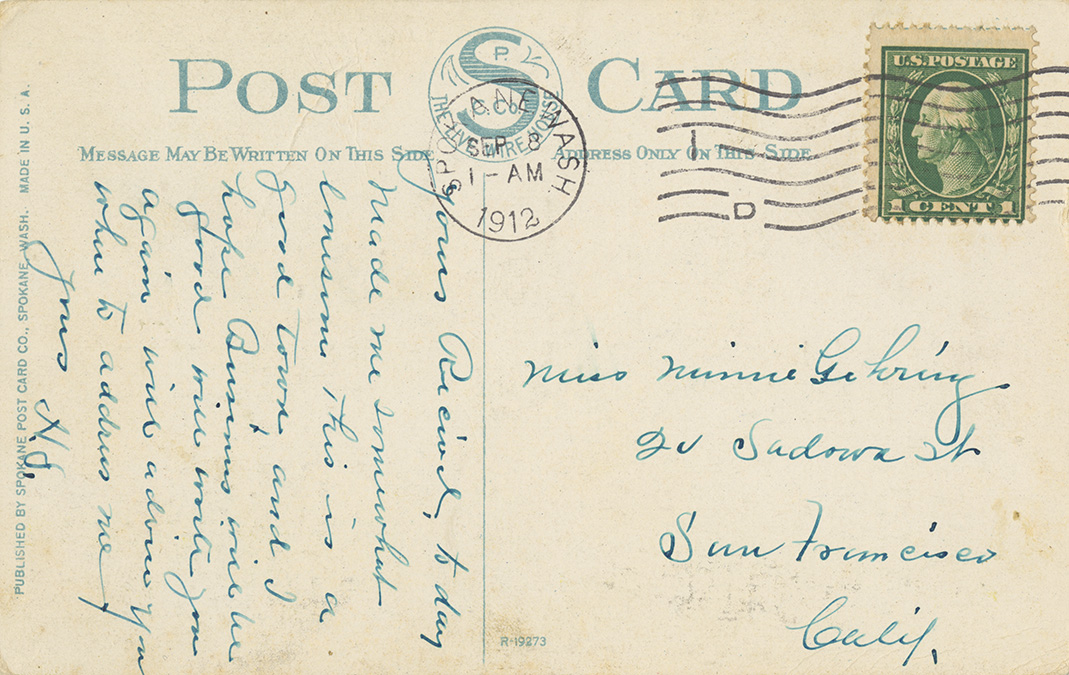 POST CARD
S
P.
C. Co.
THE LIVE WIRE HOUSE
MESSAGE MAY BE WRITTEN ON THIS SIDE
ADDRESS ONLY ON THIS SIDE
SPOKANE WASH
SEP 8
1-AM
1912
1
D
U.S. POSTAGE
1 CENT 1
yours Recievd, to day
Made me somewhat
lonesome This is a
good town and I
hope Business will be
good will write you
again will advise you
where to address me,
yours N.S.
Miss Minnie Gehring
20 Sadowa St
San Francisco
Calif,
R-19273
PUBLISHED BY SPOKANE POST CARD CO., SPOKANE, WASH. MADE IN U.S.A.